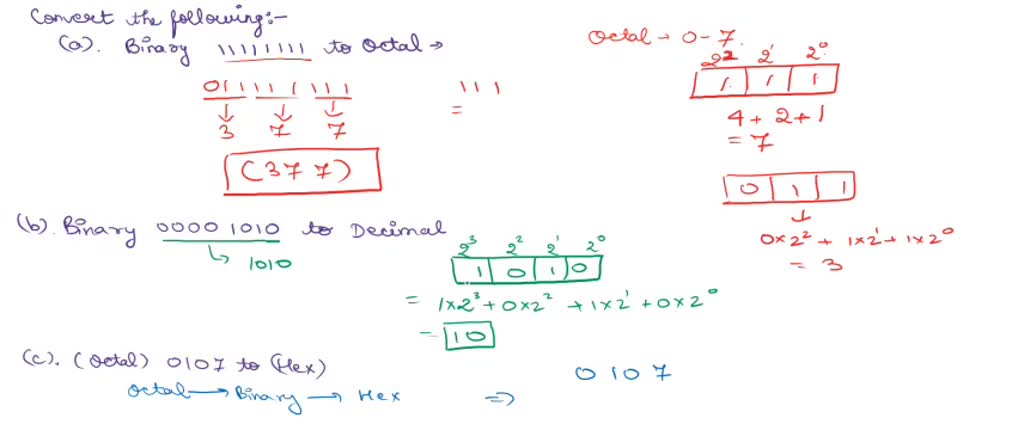 Convert the following:-
(a). Binary 11111111 to Octal →
Octal → 0-7.
2² 2¹ 2⁰
1 1 1
011111111
111
=
↓ ↓ ↓
3 7 7
4 + 2 + 1
= 7
(377)
0 1 1
↓
0×2² + 1×2¹ + 1×2⁰
= 3
(b). Binary 0000 1010 to Decimal
↳ 1010
2³ 2² 2¹ 2⁰
1 0 1 0
= 1×2³ + 0×2² + 1×2¹ + 0×2⁰
= 10
(c). (Octal) 0107 to (Hex)
0107
Octal → Binary → Hex ⇒